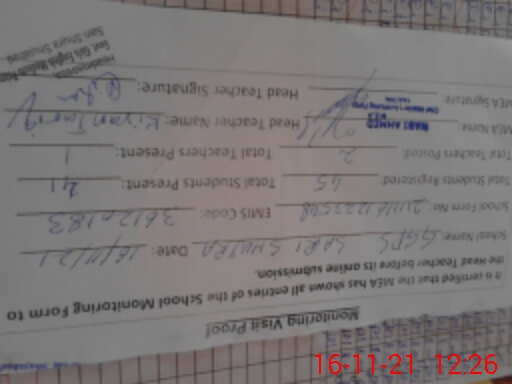 Monitoring Visit Proof
It is certified that the MEA has shown all entries of the School Monitoring Form to
the Head Teacher before its online submission.
School Name: GGPS SARI SHUJRA Date: 16/11/21
School Form No: EMIS Code: 36120183
Total Students Registered: 45 Total Students Present: 41
Total Teachers Posted: 2 Total Teachers Present: 1
MEA Name: Head Teacher Name: Kiran
MEA Signature: Head Teacher Signature:
16-11-21 12:26